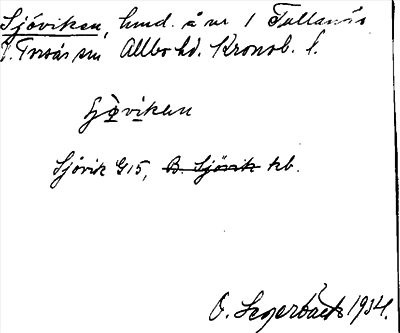 Sjöviken, lund. å nr 1 Tallanäs
V. Torsås sn Allbo hd. Kronob. l.
Sjövik G15, B. Sjövik kb.
O. Segerbäck 1934.